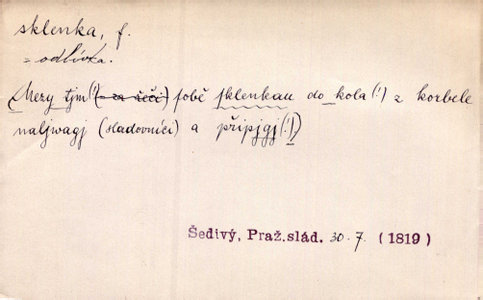 sklenka, f.
= odlivka.
Mezy tjm(!) (= za řeči) sobě sklenkau do kola(!) z korbele
naljwagj (sladovníci) a připjgj(!)
Šedivý, Praž.slád. 30.7. (1819)